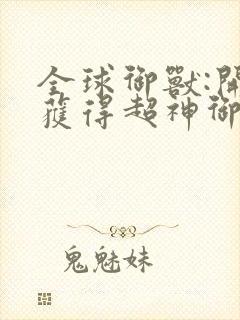 全球御獸:開
獲得超神御
鬼魅妹